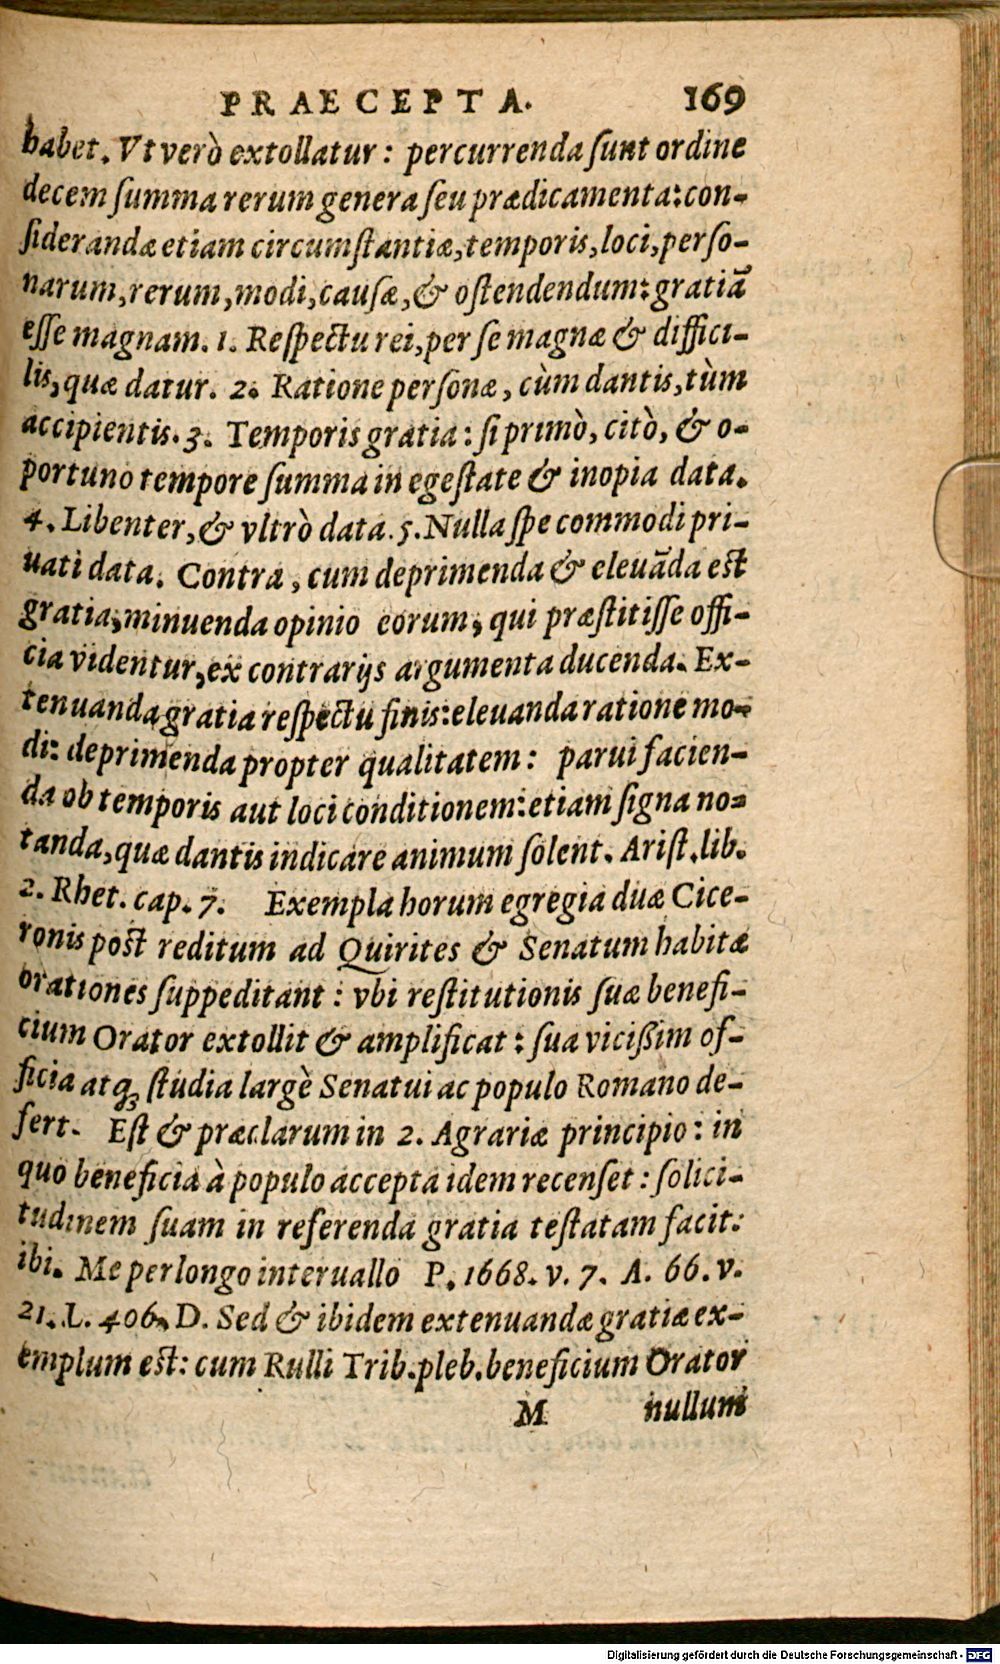 PRAECEPTA. 169
habet. Vt verò extollatur: percurrenda sunt ordine
decem summa rerum genera seu prædicamenta: con-
siderandæ etiam circumstantiæ, temporis, loci, perso-
narum, rerum, modi, causæ, & ostendendum: gratiã
esse magnam. 1. Respectu rei, per se magnæ & diffici-
lis, quæ datur. 2. Ratione personæ, cùm dantis, tùm
accipientis. 3. Temporis gratia: si primò, citò, & o-
portuno tempore summa in egestate & inopia data.
4. Libenter, & vltrò data. 5. Nulla spe commodi pri-
uati data. Contra, cum deprimenda & eleuãda est
gratia; minuenda opinio eorum; qui præstitisse offi-
cia videntur, ex contrarijs argumenta ducenda. Ex-
tenuanda gratia respectu finis: eleuanda ratione mo-
di: deprimenda propter qualitatem: parui facien-
da ob temporis aut loci conditionem: etiam signa no-
tanda, quæ dantis indicare animum solent. Arist. lib.
2. Rhet. cap. 7. Exempla horum egregia duæ Cice-
ronis post reditum ad Quirites & Senatum habitæ
orationes suppeditant: vbi restitutionis suæ benefi-
cium Orator extollit & amplificat: sua vicißim of-
ficia atq; studia largè Senatui ac populo Romano de-
fert. Est & præclarum in 2. Agrariæ principio: in
quo beneficia à populo accepta idem recenset: solici-
tudinem suam in referenda gratia testatam facit:
ibi. Me perlongo interuallo P. 1668. v. 7. A. 66. v.
21. L. 406. D. Sed & ibidem extenuandæ gratiæ ex-
emplum est: cum Rulli Trib. pleb. beneficium Orator
M nullum
Digitalisierung gefördert durch die Deutsche Forschungsgemeinschaft - DFG